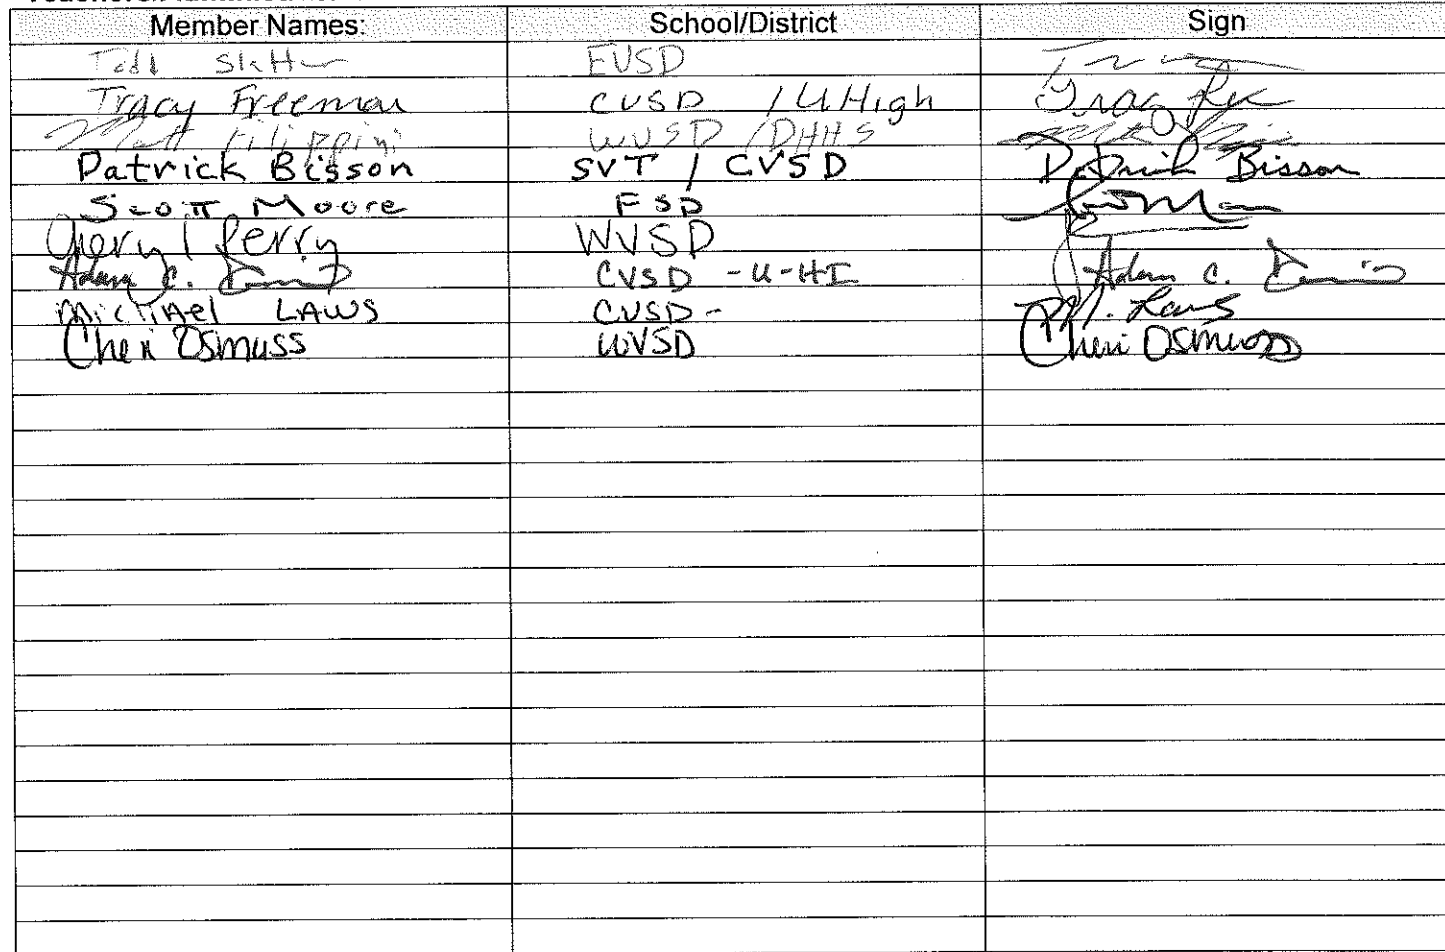 Member Names: School/District Sign
Todd EVSD
Tracy Freeman CVSD / U.High
Matt Filippini WVSD / DHHS
Patrick Bisson SVT / CVSD Patrick Bisson
Scott Moore FSD
Cheryl Perry WVSD
Adam C. CVSD - U-HI Adam C.
Michael LAWS CVSD - M. Laws
Cheri Osmuss WVSD Cheri Osmuss